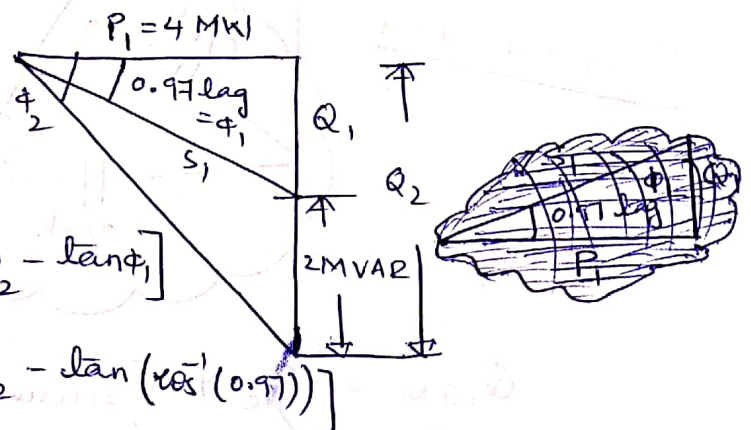 P₁ = 4 MW
0.97 lag
= φ₁
φ₂
Q₁
S₁
Q₂
2 MVAR
₂ - tanφ₁]
₂ - tan(cos⁻¹(0.97))]
φ
0.97 lag
P₁